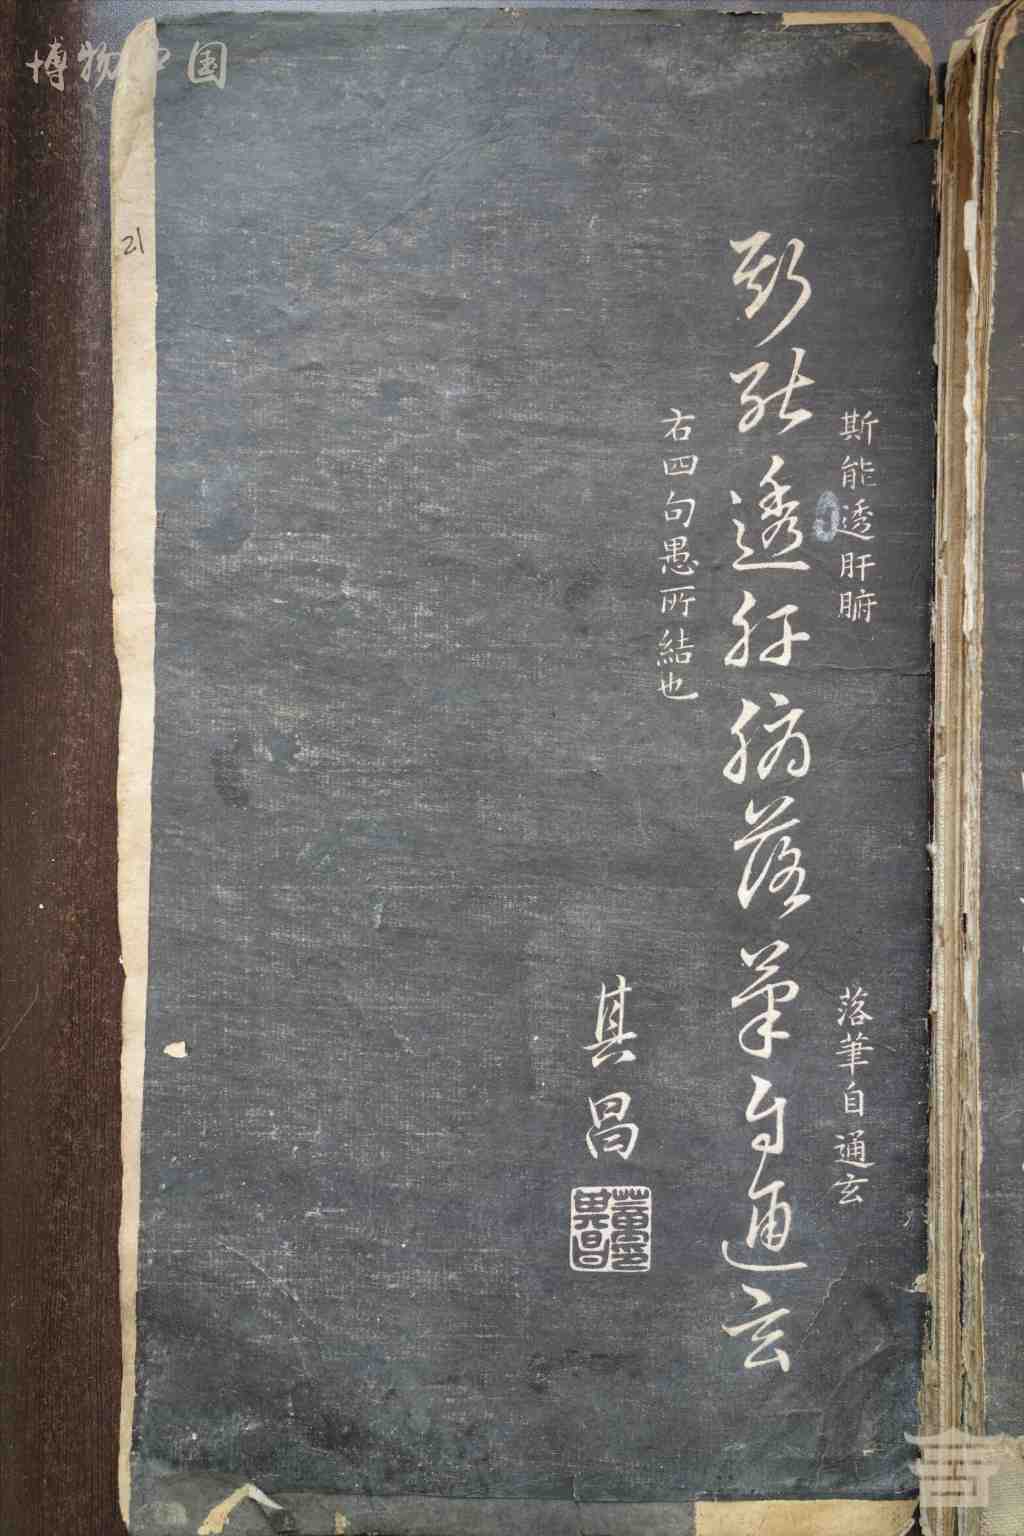 博物中国
21
斯能透肝腑 落筆自通玄
斯能透肝腑落筆自通玄
右四句愚所結也
其昌
董其昌印